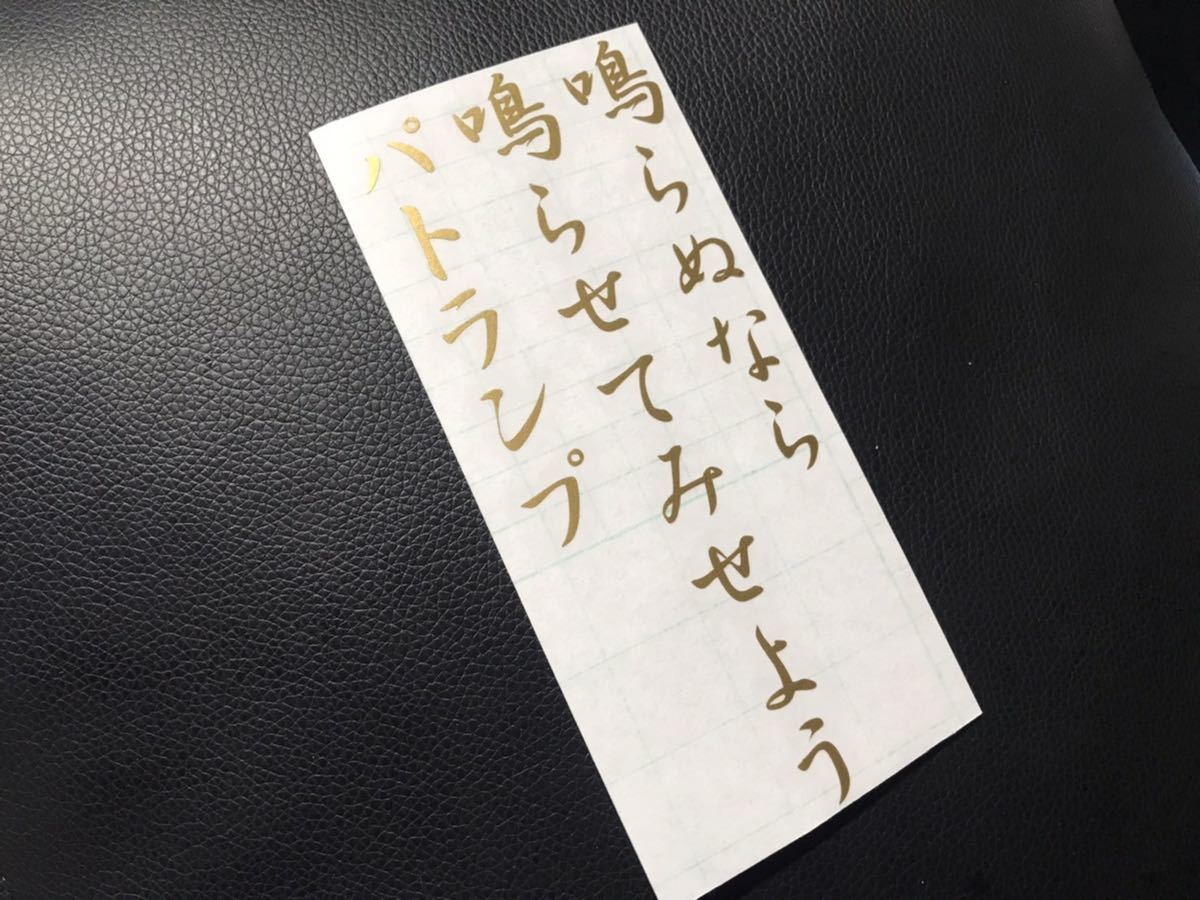 鳴らぬなら
鳴らせてみせよう
パトランプ